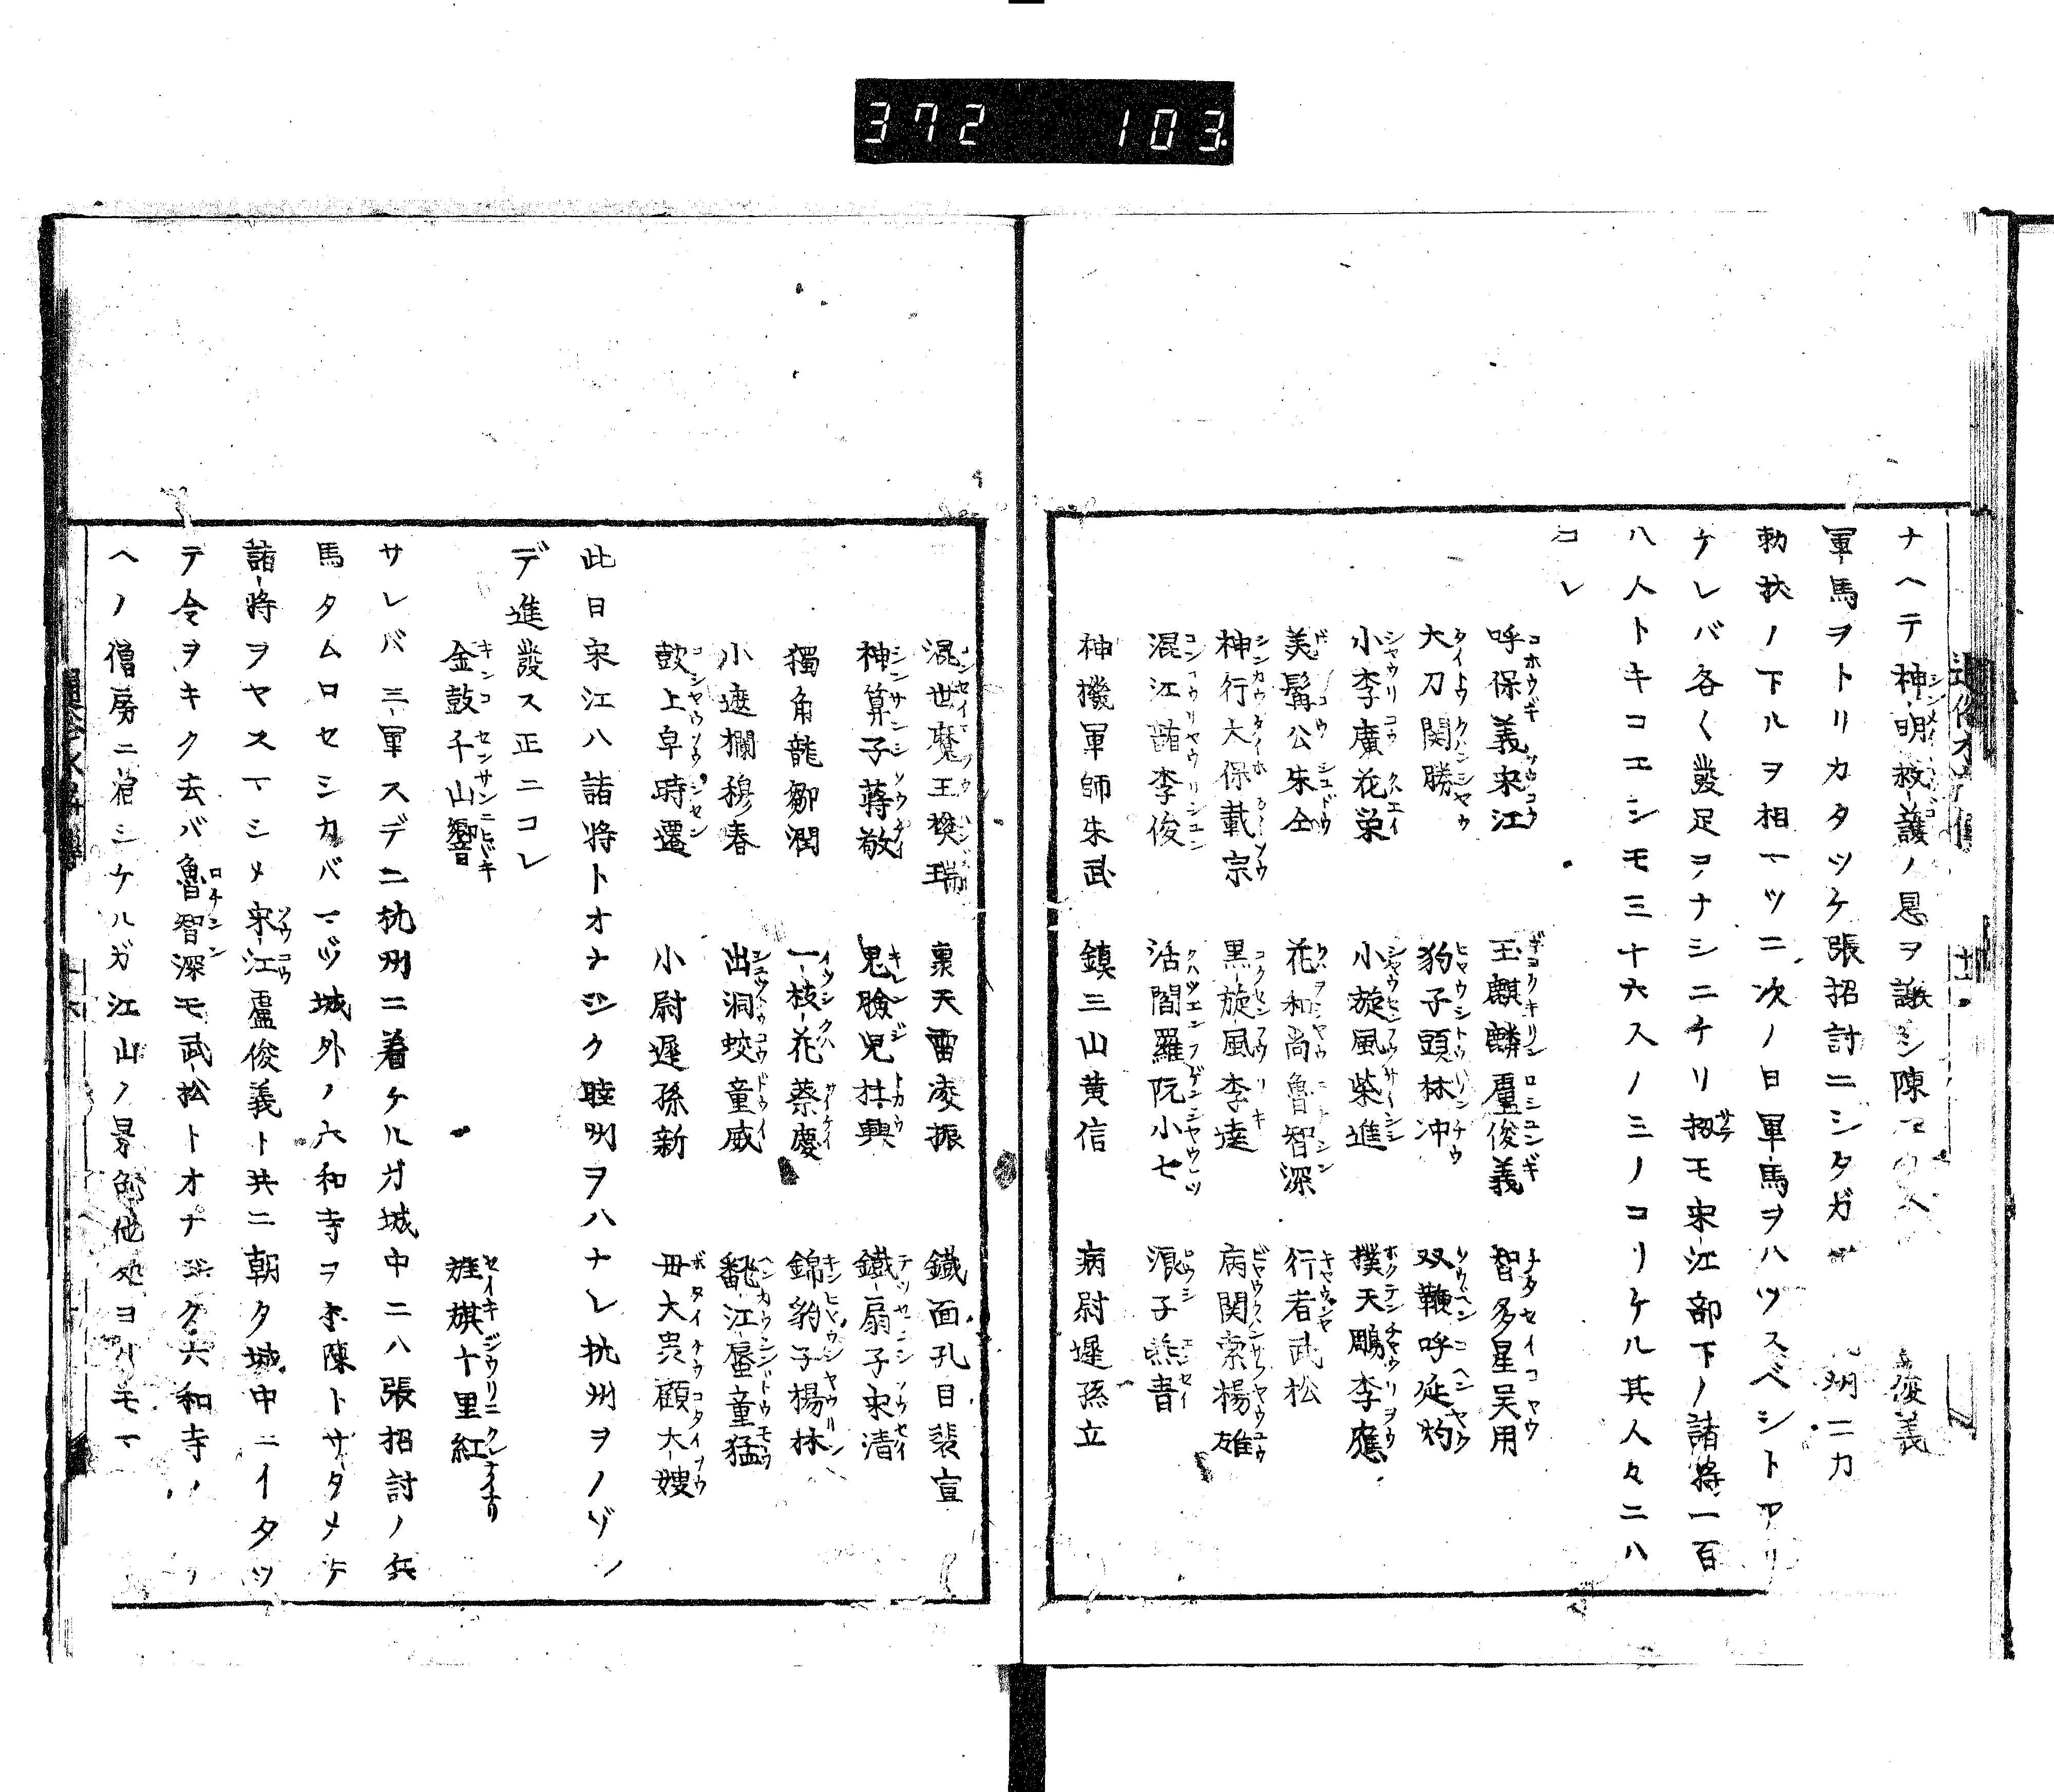 372 103
ナヘテ神明救護ノ恩ヲ謝シ陳 俊義
軍馬ヲトリカタツケ張招討ニシタガ 明ニカ
勅扠ノ下ルヲ相マツニ次ノ日軍馬ヲハツスベシトアリ
ケレバ各く發足ヲナシニケリ扨モ宋江部下ノ諸將一百
八人トキコエシモ三十六人ノミノコリケル其人々ニハ
コレ
呼保義宋江 玉麒麟盧俊義 智多星吴用
大刀関勝 豹子頭林冲 双鞭呼延灼
小李廣花栄 小旋風柴進 撲天鵰李應
美髯公朱仝 花和尚魯智深 行者武松
神行大保戴宗 黒旋風李逵 病関索楊雄
混江龍李俊 活閻羅阮小七 浪子燕青
神機軍師朱武 鎮三山黄信 病尉遲孫立
混世魔王樊瑞 轟天雷凌振 鐵面孔目裴宣
神算子蒋敬 鬼臉児杜興 鐵扇子宋清
獨角龍鄒潤 一枝花蔡慶 錦豹子楊林
小遮攔穆春 出洞蛟童威 翻江蜃童猛
鼓上皁時遷 小尉遲孫新 毋大虫顧大嫂
此日宋江ハ諸將トオナジク睦州ヲハナレ杭州ヲノゾン
デ進發ス正ニコレ
金鼓千山響 旌旗十里紅
サレバ三軍スデニ杭州ニ着ケルガ城中ニハ張招討ノ兵
馬タムロセシカバマヅ城外ノ六和寺ヲ本陳トサタメケ
諸將ヲヤスマシメ宋江盧俊義ト共ニ朝タ城中ニイタツ
テ令ヲキク去バ魯智深モ武松トオナジク六和寺ノ
ヘノ僧房ニ宿シケルガ江山ノ景色他処ヨリモマ